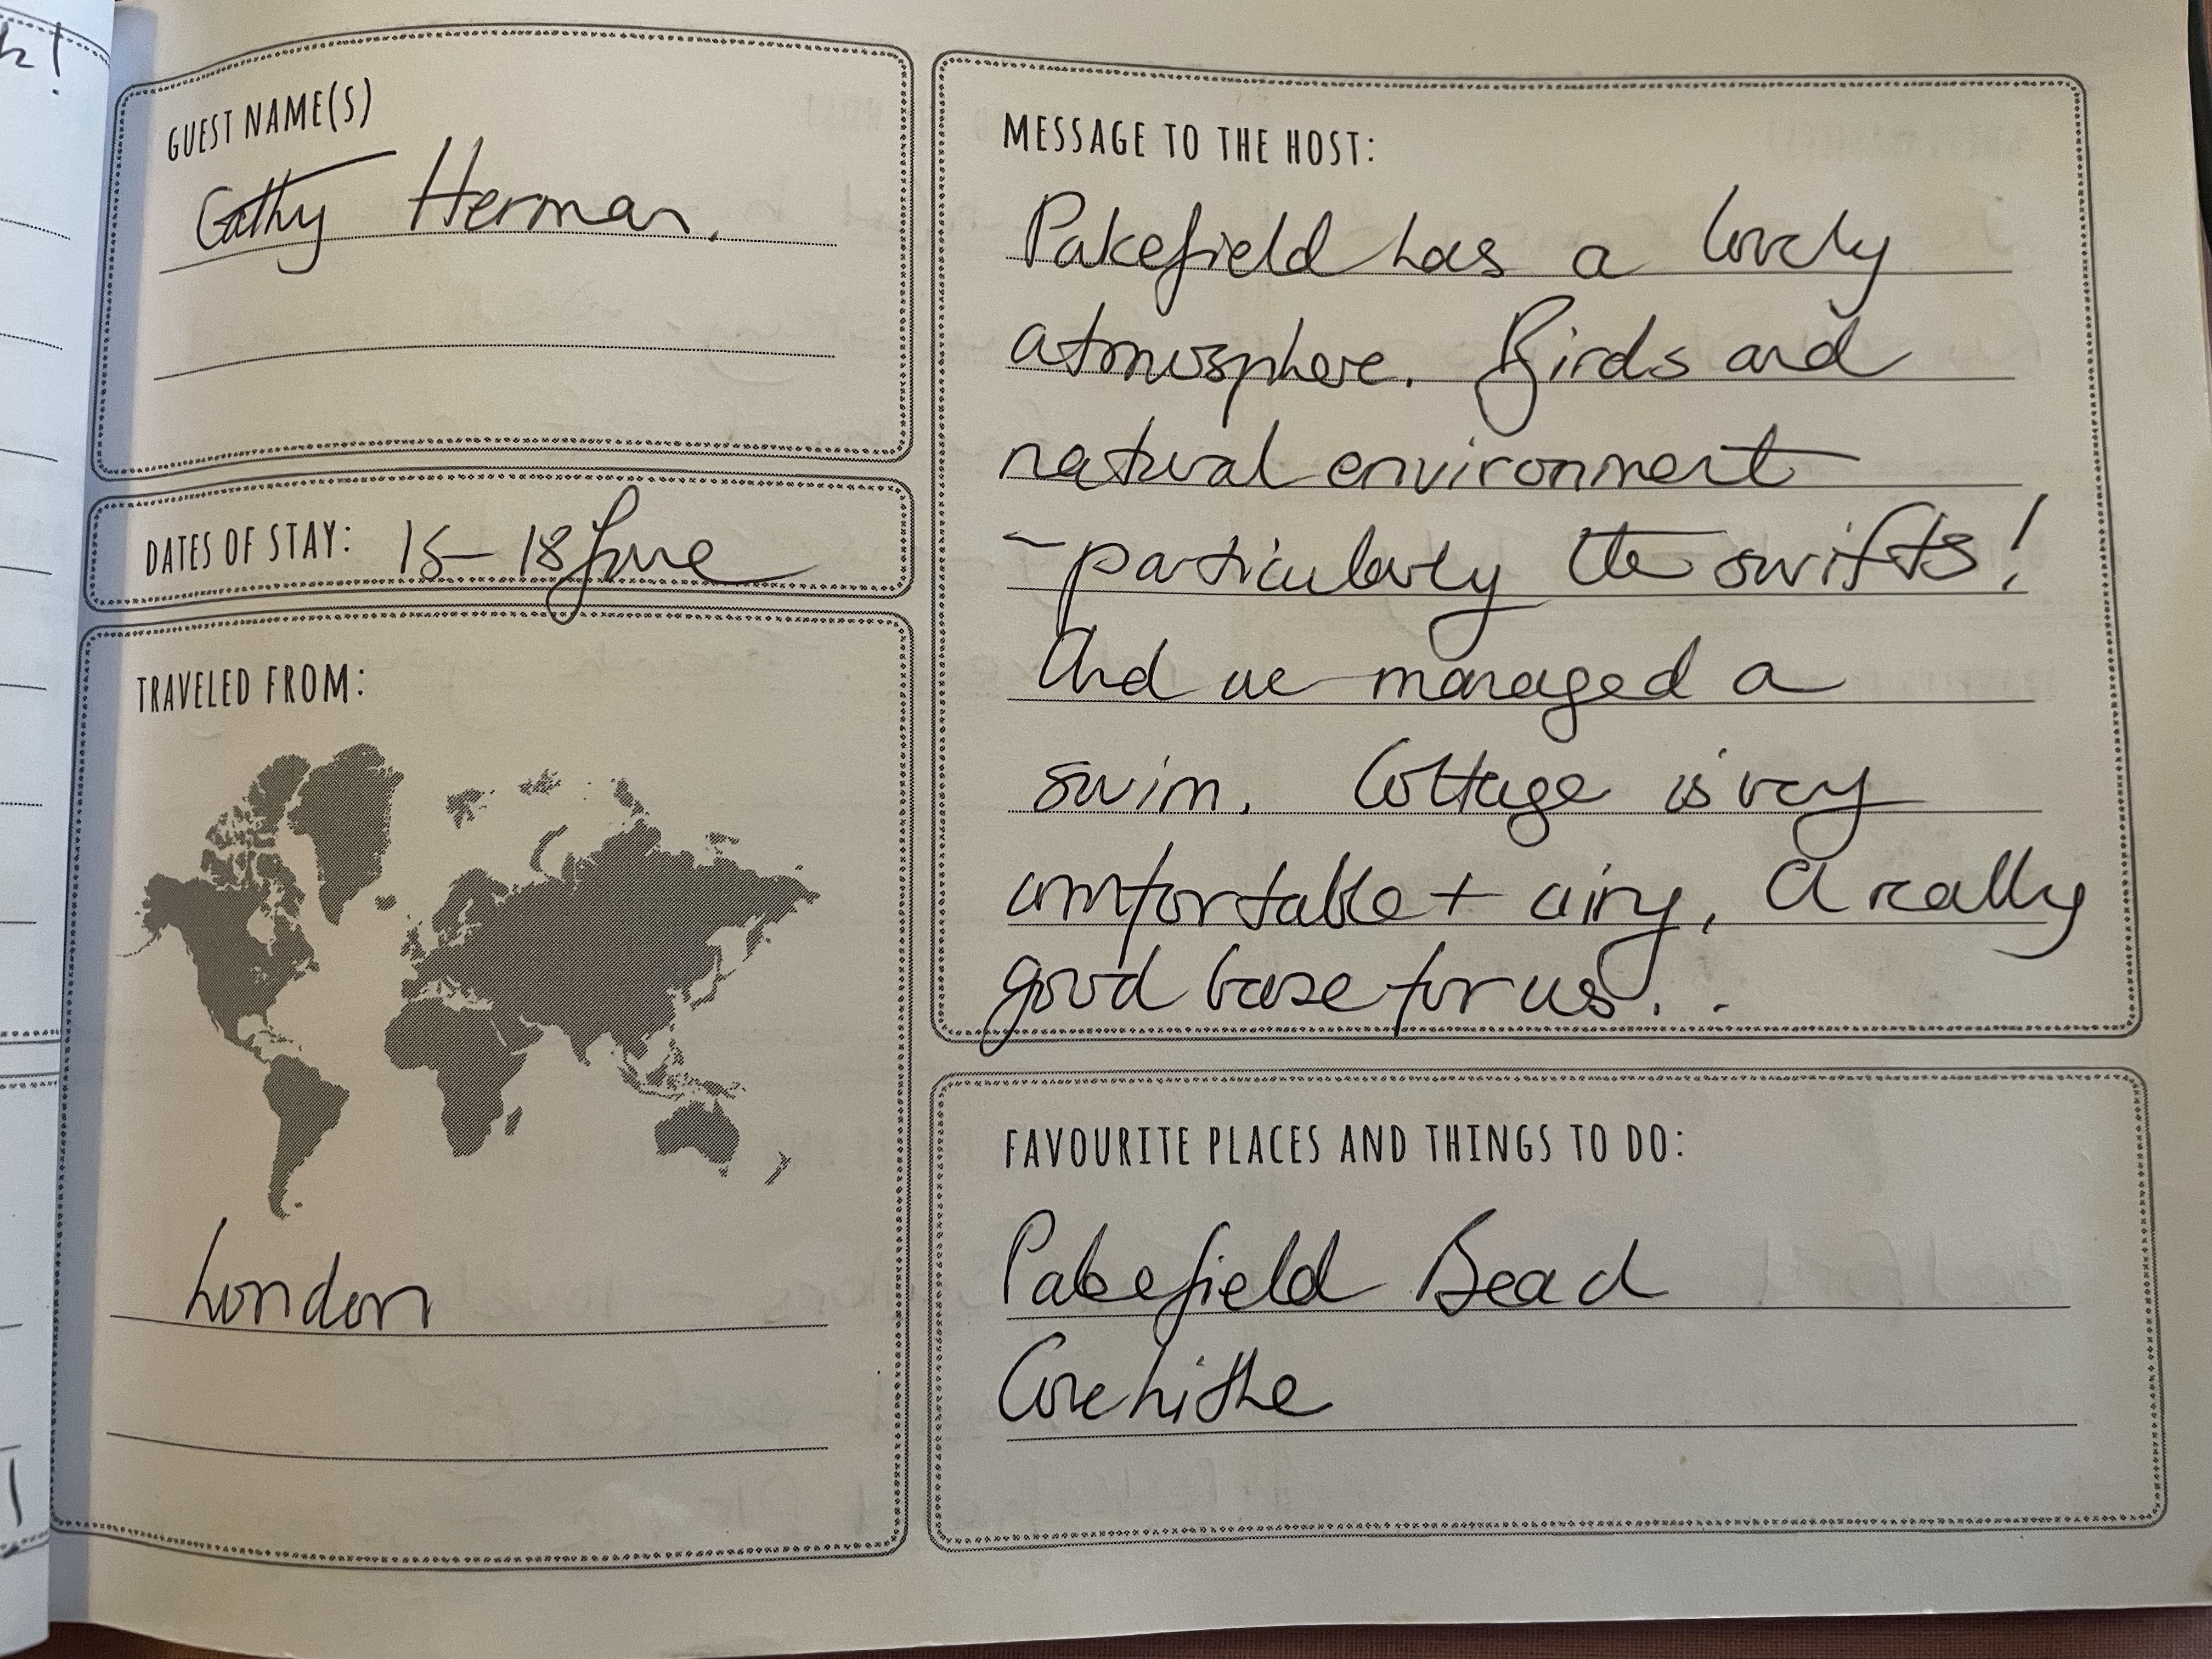 GUEST NAME(S)
Cathy Herman.
DATES OF STAY: 15 - 18 June
TRAVELED FROM:
London
MESSAGE TO THE HOST:
Pakefield has a lovely
atmosphere. Birds and
natural environment
- particularly the swifts!
And we managed a
swim. Cottage is very
comfortable + airy. A really
good base for us..
FAVOURITE PLACES AND THINGS TO DO:
Pakefield Beach
Covehithe